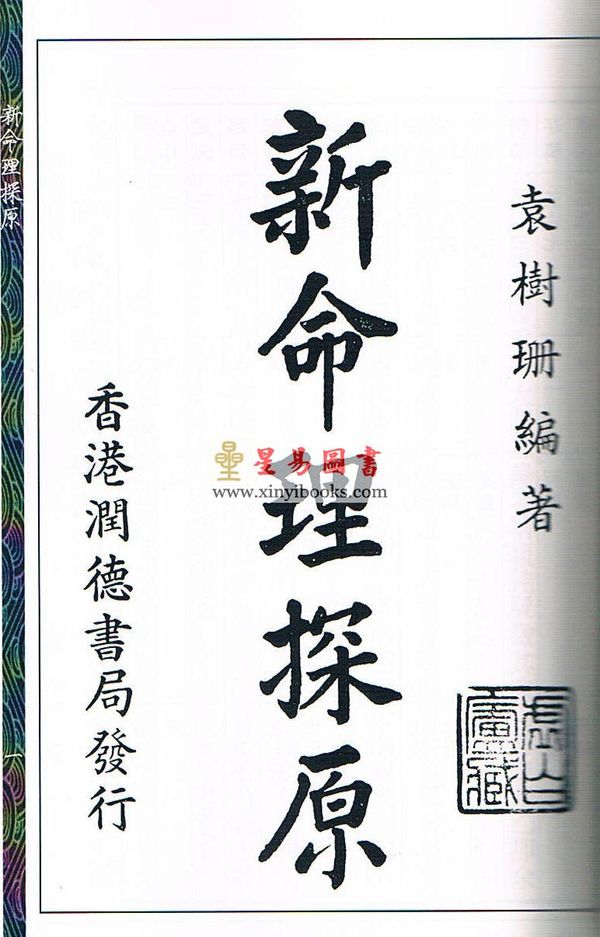 袁樹珊編著
虛白廬藏
新命理探原
星易圖書
www.xinyibooks.com
香港潤德書局發行
新命理探原
一